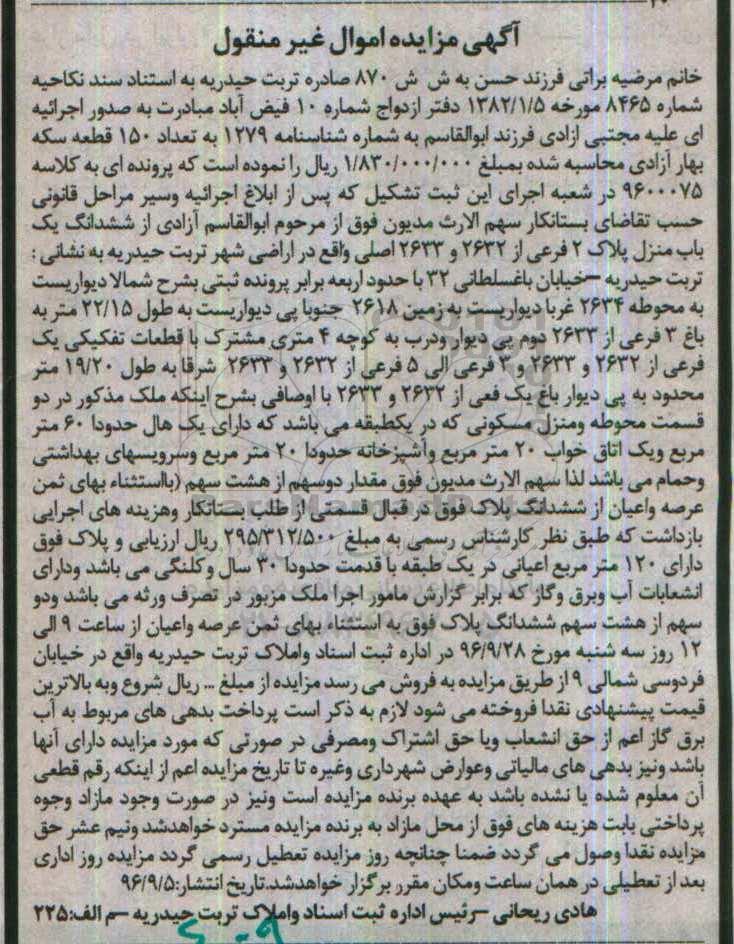 آگهی مزایده اموال غیر منقول
خانم مرضیه براتی فرزند حسن به ش ش ۸۷۰ صادره تربت حیدریه به استناد سند نکاحیه
شماره ۸۴۶۵ مورخه ۱۳۸۲/۱/۵ دفتر ازدواج شماره ۱۰ فیض آباد مبادرت به صدور اجرائیه
ای علیه مجتبی ازادی فرزند ابوالقاسم به شماره شناسنامه ۱۲۷۹ به تعداد ۱۵۰ قطعه سکه
بهار آزادی محاسبه شده بمبلغ ۱/۸۳۰/۰۰۰/۰۰۰ ریال را نموده است که پرونده ای به کلاسه
۹۶۰۰۰۷۵ در شعبه اجرای این ثبت تشکیل که پس از ابلاغ اجرائیه وسیر مراحل قانونی
حسب تقاضای بستانکار سهم الارث مدیون فوق از مرحوم ابوالقاسم آزادی از ششدانگ یک
باب منزل پلاک ۲ فرعی از ۲۶۳۲ و ۲۶۳۳ اصلی واقع در اراضی شهر تربت حیدریه به نشانی :
تربت حیدریه –خیابان باغسلطانی ۳۲ با حدود اربعه برابر پرونده ثبتی بشرح شمالا دیواریست
به محوطه ۲۶۳۴ غربا دیواریست به زمین ۲۶۱۸ جنوبا پی دیواریست به طول ۲۲/۱۵ متر به
باغ ۳ فرعی از ۲۶۳۳ دوم پی دیوار ودرب به کوچه ۴ متری مشترک با قطعات تفکیکی یک
فرعی از ۲۶۳۲ و ۲۶۳۳ و ۳ فرعی الی ۵ فرعی از ۲۶۳۲ و ۲۶۳۳ شرقا به طول ۱۹/۲۰ متر
محدود به پی دیوار باغ یک فعی از ۲۶۳۲ و ۲۶۳۳ با اوصافی بشرح اینکه ملک مذکور در دو
قسمت محوطه ومنزل مسکونی که در یکطبقه می باشد که دارای یک هال حدودا ۶۰ متر
مربع ویک اتاق خواب ۲۰ متر مربع وآشپزخانه حدودا ۲۰ متر مربع وسرویسهای بهداشتی
وحمام می باشد لذا سهم الارث مدیون فوق مقدار دوسهم از هشت سهم (بااستثناء بهای ثمن
عرصه واعیان از ششدانگ پلاک فوق در قبال قسمتی از طلب بستانکار وهزینه های اجرایی
بازداشت که طبق نظر کارشناس رسمی به مبلغ ۲۹۵/۳۱۲/۵۰۰ ریال ارزیابی و پلاک فوق
دارای ۱۲۰ متر مربع اعیانی در یک طبقه با قدمت حدودا ۳۰ سال وکلنگی می باشد ودارای
انشعابات آب وبرق وگاز که برابر گزارش مامور اجرا ملک مزبور در تصرف ورثه می باشد ودو
سهم از هشت سهم ششدانگ پلاک فوق به استثناء بهای ثمن عرصه واعیان از ساعت ۹ الی
۱۲ روز سه شنبه مورخ ۹۶/۹/۲۸ در اداره ثبت اسناد واملاک تربت حیدریه واقع در خیابان
فردوسی شمالی ۹ از طریق مزایده به فروش می رسد مزایده از مبلغ ... ریال شروع وبه بالاترین
قیمت پیشنهادی نقدا فروخته می شود لازم به ذکر است پرداخت بدهی های مربوط به آب
برق گاز اعم از حق انشعاب ویا حق اشتراک ومصرفی در صورتی که مورد مزایده دارای آنها
باشد ونیز بدهی های مالیاتی وعوارض شهرداری وغیره تا تاریخ مزایده اعم از اینکه رقم قطعی
آن معلوم شده یا نشده باشد به عهده برنده مزایده است ونیز در صورت وجود مازاد وجوه
پرداختی بابت هزینه های فوق از محل مازاد به برنده مزایده مسترد خواهدشد ونیم عشر حق
مزایده نقدا وصول می گردد ضمنا چنانچه روز مزایده تعطیل رسمی گردد مزایده روز اداری
بعد از تعطیلی در همان ساعت ومکان مقرر برگزار خواهدشد.تاریخ انتشار:۹۶/۹/۵
هادی ریحانی –رئیس اداره ثبت اسناد واملاک تربت حیدریه –م الف:۲۲۵